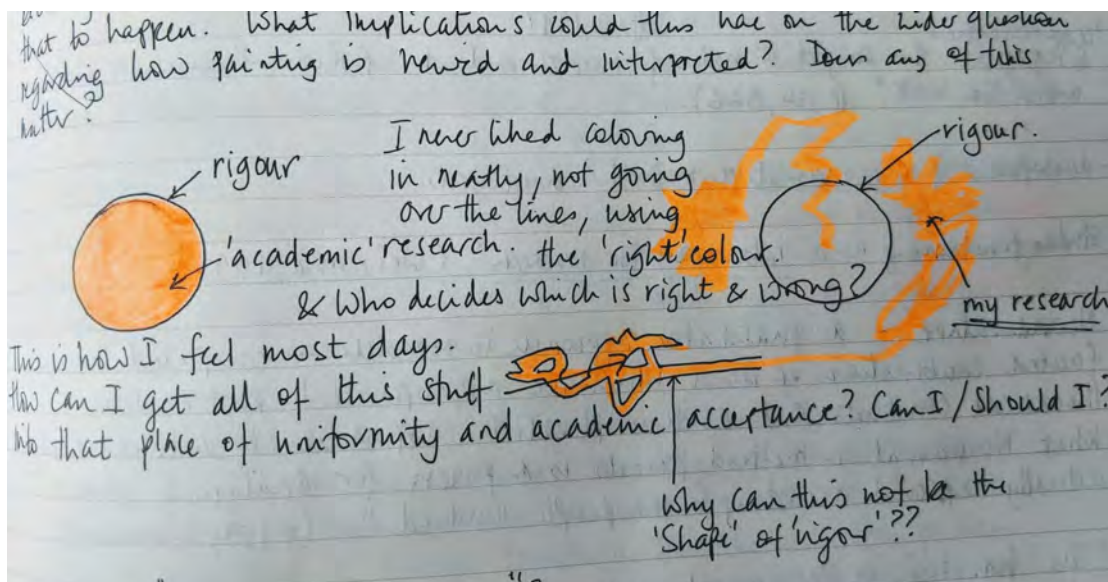 that to happen. What implications could this have on the wider question
regarding how painting is viewed and interpreted? Does any of this
matter?
rigour
'academic' research.
I never liked coloring
in neatly, not going
over the lines, using
the 'right' colour.
& Who decides which is right & wrong?
rigour.
my research
This is how I feel most days.
How can I get all of this stuff
into that place of uniformity and academic acceptance? Can I / Should I?
Why can this not be the
'Shape' of 'rigour'??